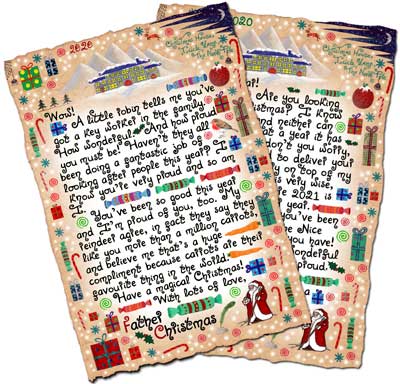 2020
Wow!
A little robin tells me you've
got a key worker in the family.
How wonderful! And how proud
you must be. Haven't they all
been doing a fantastic job of
looking after people this year? I
know you're very proud and so am
I.
You've been so good this year
and I'm proud of you, too. My
reindeer agree, in fact they say they
like you more than a million carrots,
and believe me that's a huge
compliment because carrots are their
favourite thing in the world!
Have a magical Christmas!
With lots of love,
Father Christmas
2020
Christmas House
Are you looking
Christmas? I know
and neither can
what a year it has
don't you worry,
to deliver your
on top of my
very wise,
2021 is
year.
you've been
Nice
you have!
wonderful
proud,